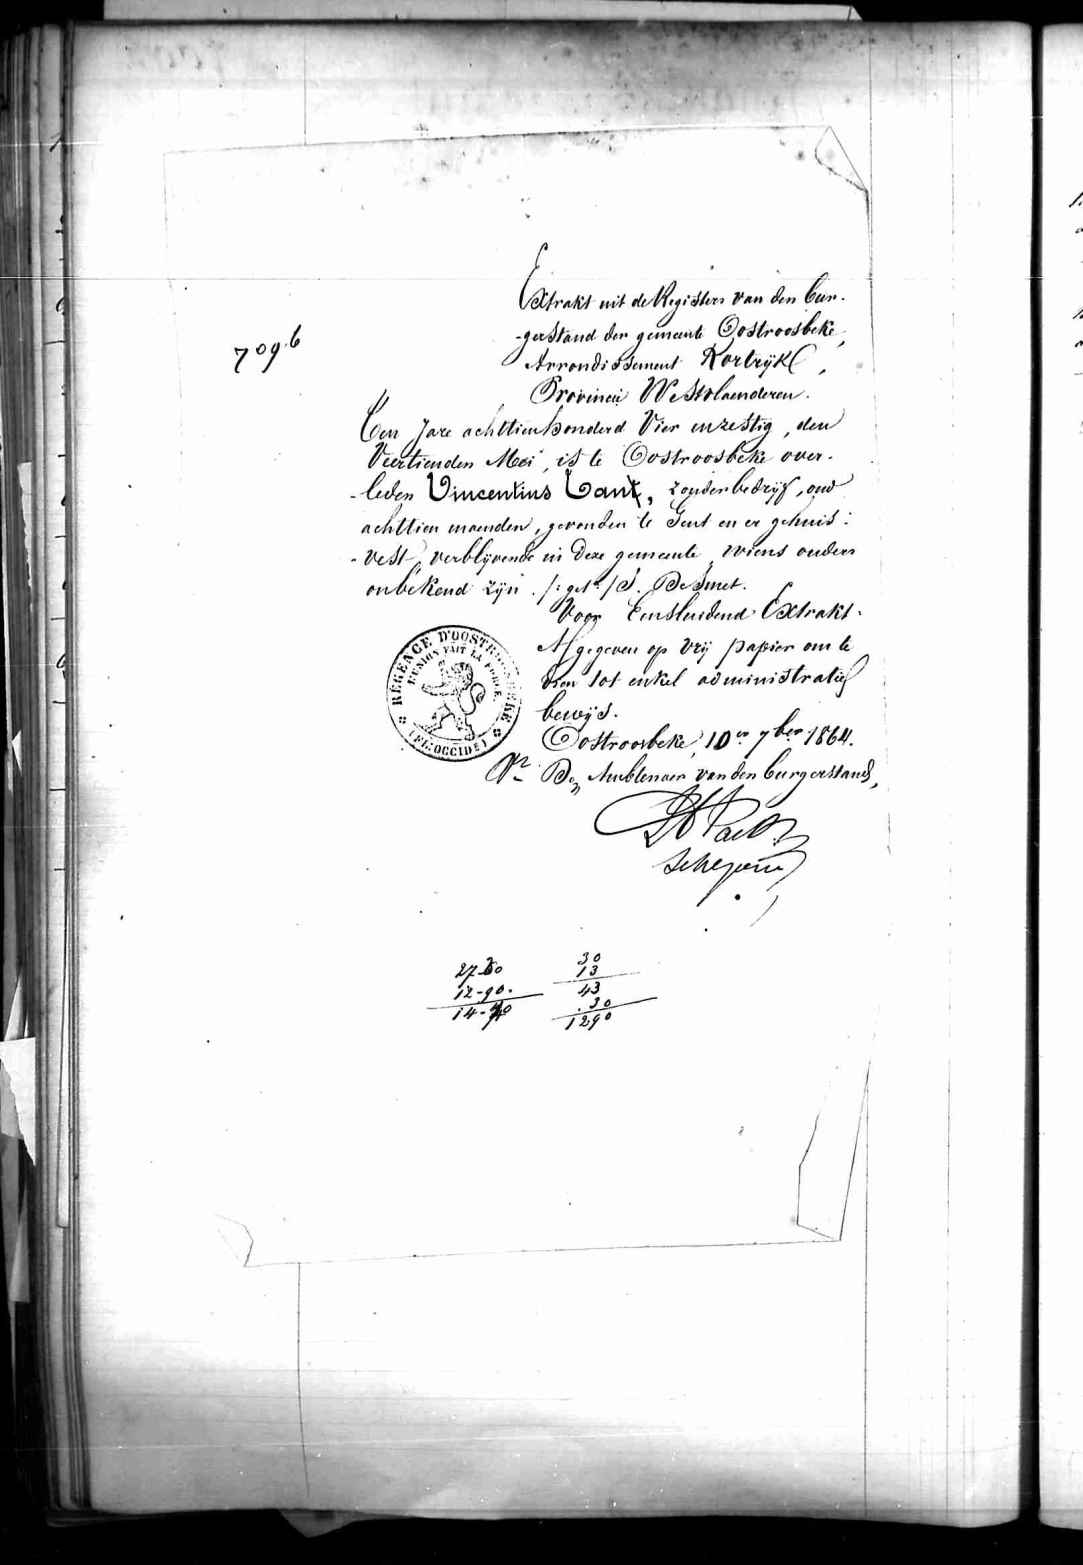 709.b
Extrakt uit de Registers van den bur-
-gerstand der gemeente Oostroosbeke,
Arrondissement Kortrÿk,
Provincie Westvlaenderen.
Ten Jare achttien honderd Vier en zestig, den
Veertienden Mei, is te Oostroosbeke over-
-leden Vincentius Tant, zonder bedrÿf, oud
achttien maenden, gevonden te Gent en er gehuis:
-vest, verblÿvende in deze gemeente, wiens ouders
onbekend zÿn. /:get: /S. De Smet.
Voor Eensluidend Extrakt.
Afgegeven op vrÿ papier om te
dien tot enkel administratief
bewÿs.
Oostroosbeke, 10en 7ber 1864.
De Ambtenaer van den burgerstand,
Schepene
RÉGENCE D'OOSTROOSEBEKE
L'UNION FAIT LA FORCE.
(FL: OCCIDE)
27-60
12-90.
14-70
30
13
43
.30
1290